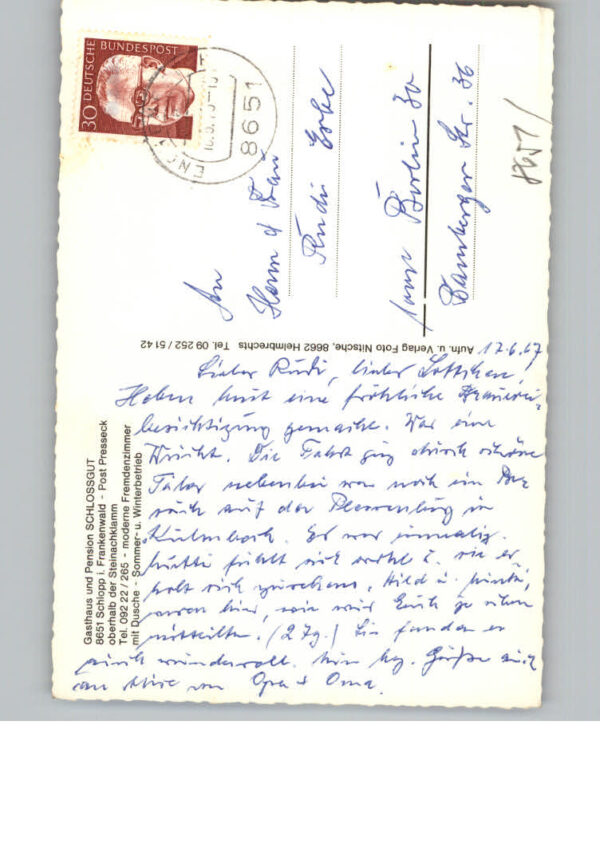 30 DEUTSCHE BUNDESPOST
8651
8651/
An
Herrn u Frau
Rudi
1000 Berlin 30
Bamberger Str. 36
Aufn. u. Verlag Foto Nitsche, 8662 Helmbrechts Tel. 09 252 / 51 42
Gasthaus und Pension SCHLOSSGUT
8651 Schlopp i. Frankenwald - Post Presseck
oberhalb der Steinachklamm
Tel. 092 22 / 265 - moderne Fremdenzimmer
mit Dusche - Sommer- u. Winterbetrieb
17.6.
Lieber Rudi, liebes Lottchen,
Haben heut eine fröhliche Brauerei-
besichtigung gemacht. War eine
Wucht. Die Fahrt ging durch schöne
Täler nebenbei war noch ein Be
such auf der Plassenburg in
Kulmbach. Es war einmalig.
fühlt sich wohl u. wie er
Hild u.
waren hier, wie wir Euch ja schon
mitteilten. (2 Tg.) Sie fanden es
auch wundervoll. Nun hzg. Grüße auch
an von Opa & Oma.